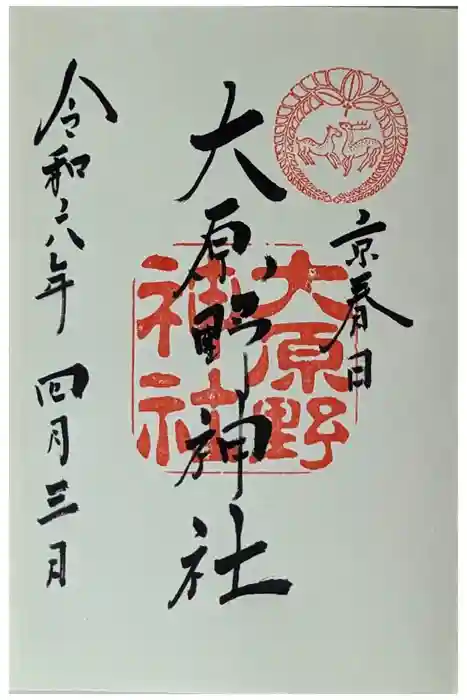 京春日
大原野神社
大原野
神社
令和六年 四月三日